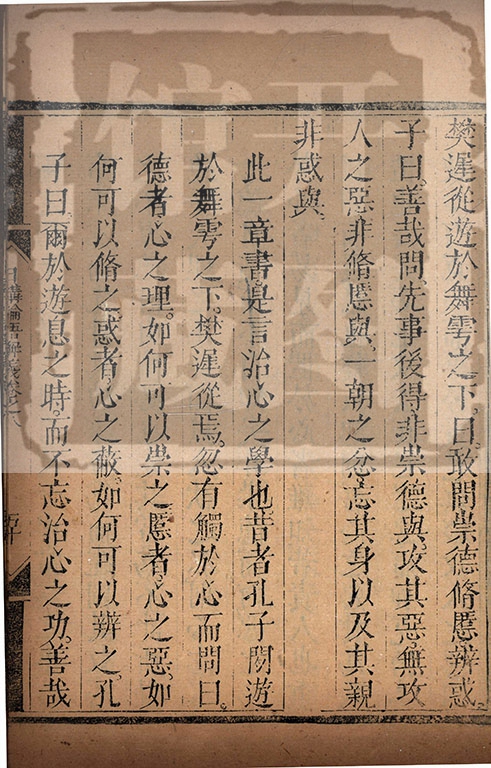 樊遲從遊於舞雩之下。曰。敢問崇德脩慝辨惑。
子曰。善哉問。先事後得。非崇德與。攻其惡。無攻
人之惡。非脩慝與。一朝之忿。忘其身以及其親
非惑與。
此一章書。是言治心之學也。昔者孔子閒遊
於舞雩之下。樊遲從焉。忽有觸於心而問曰。
德者心之理。如何可以崇之。慝者心之惡。如
何可以脩之。惑者心之蔽。如何可以辨之。孔
子曰。爾於遊息之時。而不忘治心之功。善哉